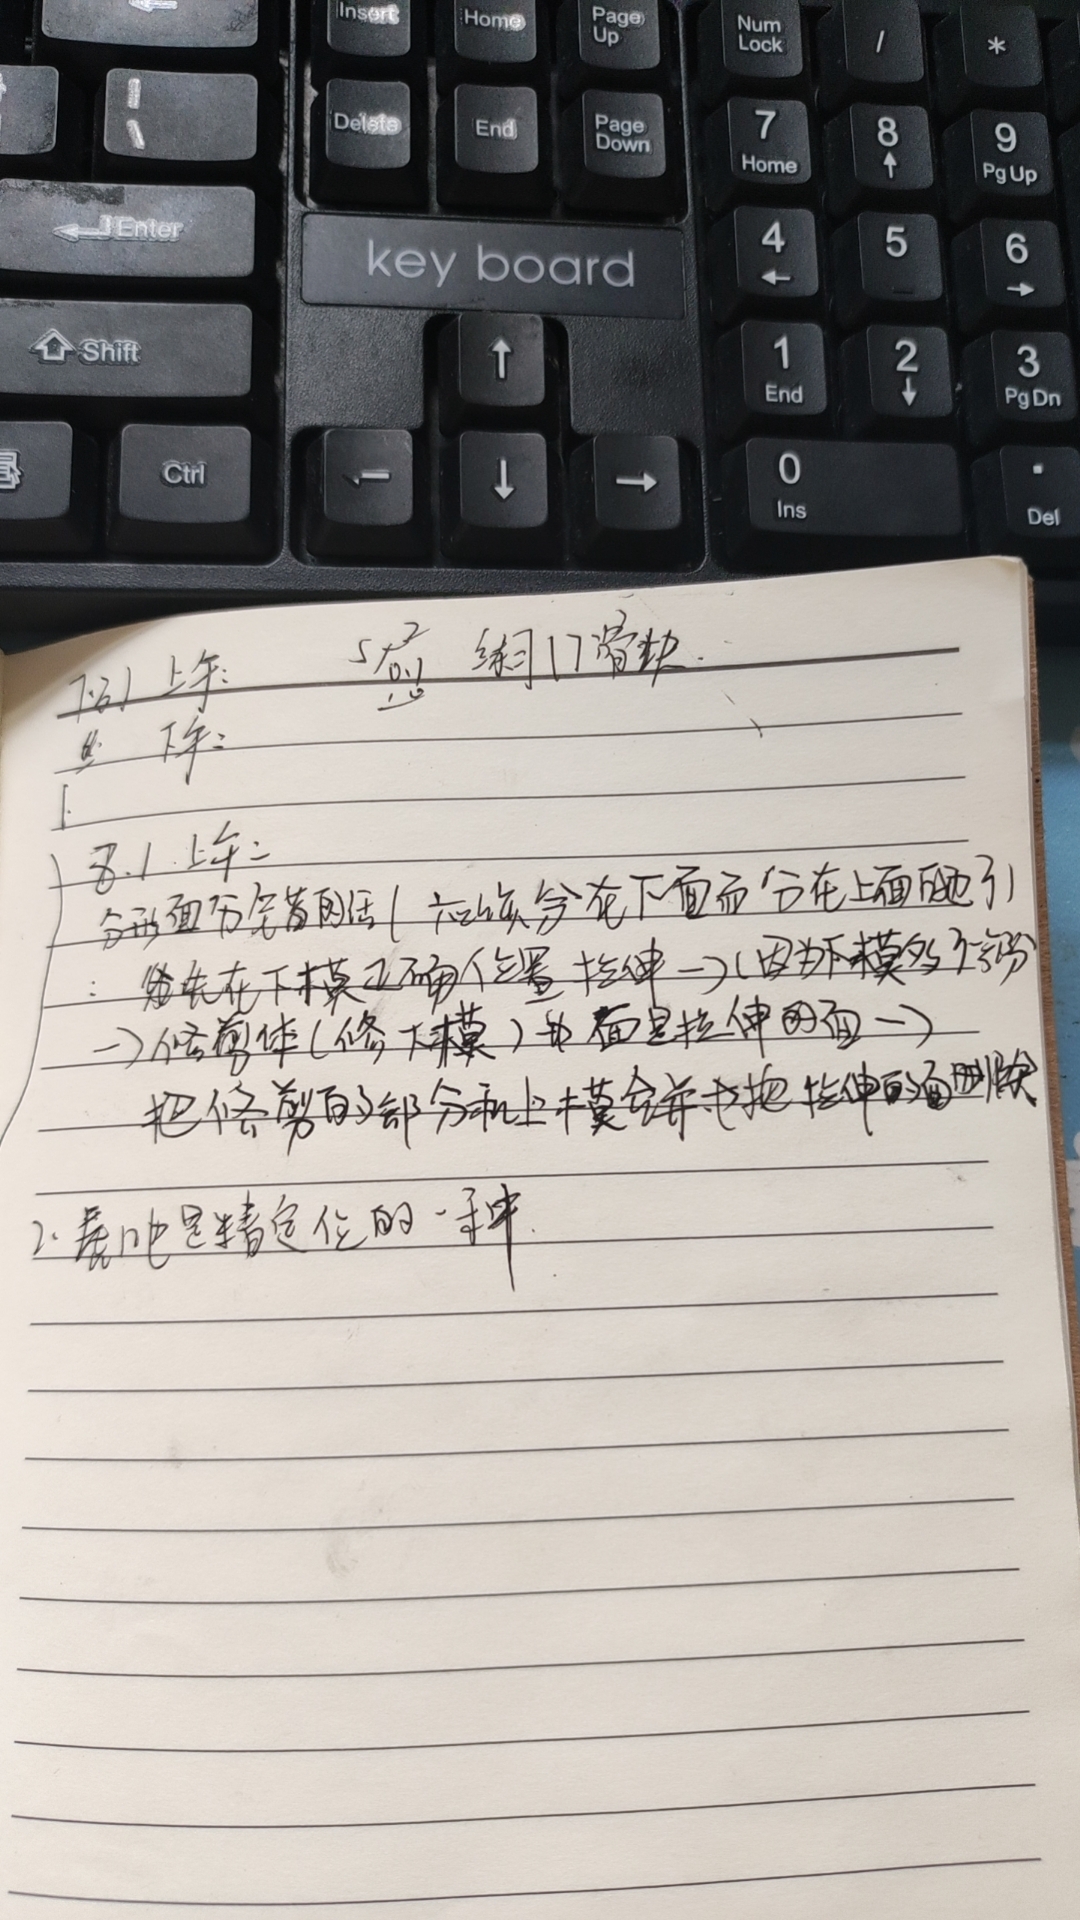 Insert Home Page Up Num Lock / *
Delete End Page Down 7 Home 8 9 Pg Up
Enter key board 4 5 6
Shift 1 End 2 3 Pg Dn
Ctrl 0 Ins . Del
7.31 上午: 练习17滑块.
下午:
1.
8.1 上午:
分形面分完首的话( 应该分在下面而分在上面的地方)
: 先在下模正确位置拉伸→(因为下模多个部分
→修剪体(修下模) 面是拉伸的面→
把修剪的部分和上模合并 把拉伸的面删除
2. 虎口也是精定位的一种.